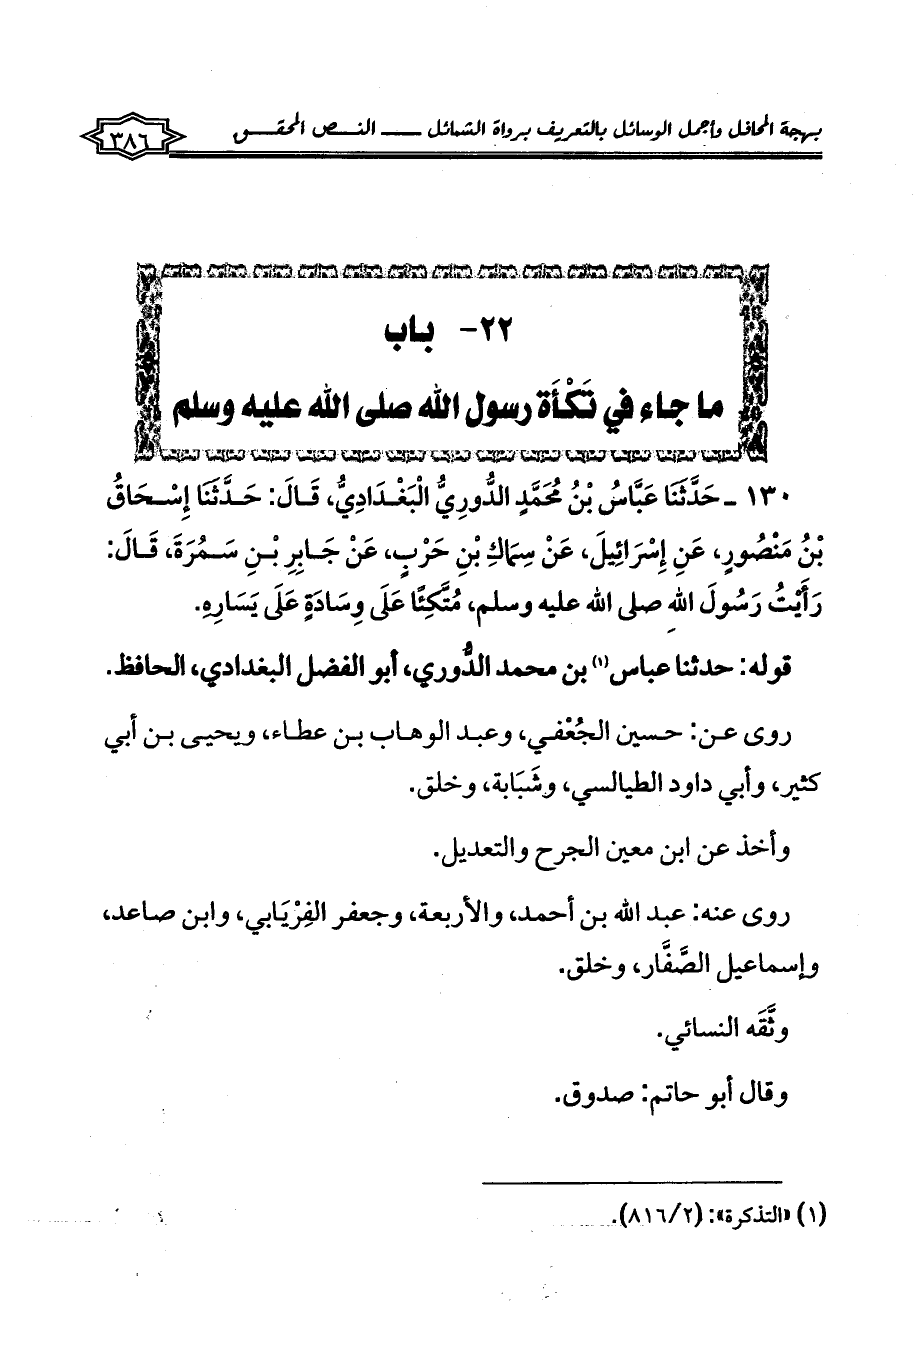 بهجة المحافل وأجمل الوسائل بالتعريف برواة الشمائل ــــ النـــص المحقـــق
٣٨٦
٢٢- باب
ما جاء في تَكْأَة رسول الله صلى الله عليه وسلم
١٣٠ ـ حَدَّثَنَا عَبَّاسُ بْنُ مُحَمَّدٍ الدُّورِيُّ الْبَغْـدَادِيُّ، قَـالَ: حَـدَّثَنَا إِسْـحَاقُ
بْنُ مَنْصُورٍ، عَنِ إِسْرَائِيلَ، عَنْ سِمَاكِ بْنِ حَرْبٍ، عَنْ جَـابِرِ بْـنِ سَـمُرَةَ، قَـالَ:
رَأَيْتُ رَسُولَ الله صلى الله عليه وسلم، مُتَّكِئًا عَلَى وِسَادَةٍ عَلَى يَسَارِهِ.
قوله: حدثنا عباس(١) بن محمد الدُّوري، أبو الفضل البغدادي، الحافظ.
روى عـن: حسين الجُعْفـي، وعبـد الوهـاب بـن عطـاء، ويحيـى بـن أبي
كثير، وأبي داود الطيالسي، وشَبَابة، وخلق.
وأخذ عن ابن معين الجرح والتعديل.
روى عنه: عبد الله بن أحمد، والأربعة، وجعفر الفِرْيَابي، وابن صاعد،
وإسماعيل الصَّفَّار، وخلق.
وثَّقَه النسائي.
وقال أبو حاتم: صدوق.
(١) «التذكرة»: (٢/ ٨١٦).